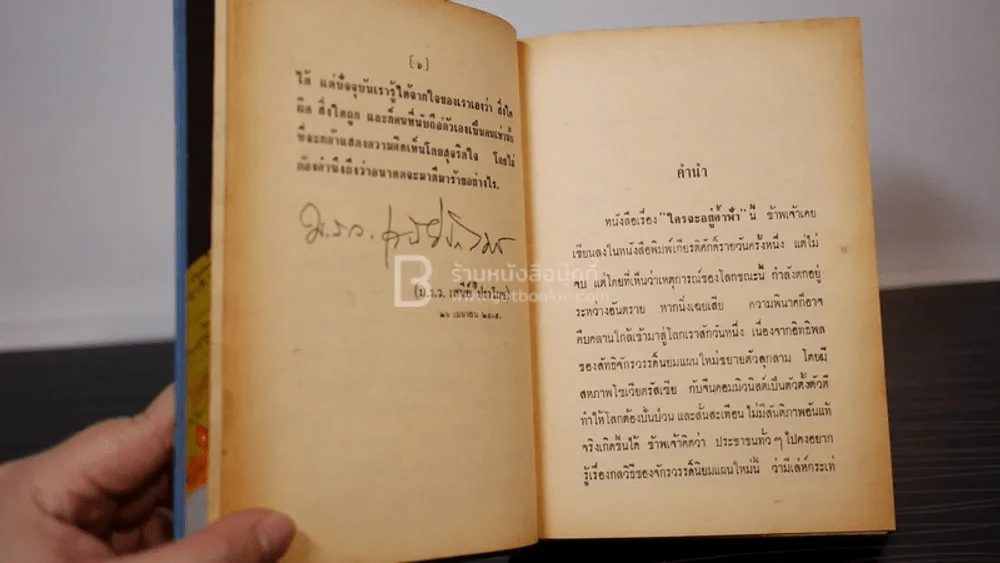 [๖]
ได้ แต่ปัจจุบันเรารู้ได้จากใจของเราเองว่า สิ่งใด
ผิด สิ่งใดถูก และก็คนที่นับถือตัวเองเป็นคนเท่านั้น
ที่จะกล้าแสดงความคิดเห็นโดยสุจริตใจ โดยไม่
ต้องคำนึงถึงว่าอนาคตจะมาดีมาร้ายอย่างไร.
ม.ร.ว.
ร้านหนังสือบุ๊คกี้
(ม.ร.ว. เสนีย์ ปราโมช)
๒๖ เมษายน ๒๕๐๕.
คำนำ
หนังสือเรื่อง "ใครจะอยู่ค้ำฟ้า" นี้ ข้าพเจ้าเคย
เขียนลงในหนังสือพิมพ์เกียรติศักดิ์รายวันครั้งหนึ่ง แต่ไม่
จบ แต่โดยที่เห็นว่าเหตุการณ์ของโลกขณะนี้ กำลังตกอยู่
ระหว่างอันตราย หากนิ่งเฉยเสีย ความพินาศก็อาจ
คืบคลานใกล้เข้ามาสู่โลกเราสักวันหนึ่ง เนื่องจากอิทธิพล
ของลัทธิจักรวรรดิ์นิยมแผนใหม่ขยายตัวลุกลาม โดยมี
สหภาพโซเวียตรัสเซีย กับจีนคอมมิวนิสต์เป็นตัวตั้งตัวตี
ทำให้โลกต้องปั่นป่วน และสั่นสะเทือน ไม่มีสันติภาพอันแท้
จริงเกิดขึ้นได้ ข้าพเจ้าคิดว่า ประชาชนทั่ว ๆ ไปคงอยาก
รู้เรื่องกลวิธีของจักรวรรดิ์นิยมแผนใหม่นี้ ว่ามีเล่ห์กระเท่